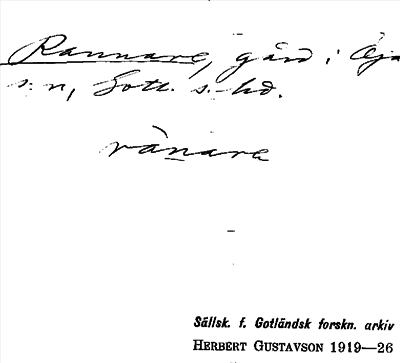 Rannare, gård i Öja
s:n, Gotl. s. hd.
rànara
Sällsk. f. Gotländsk forskn. arkiv
HERBERT GUSTAVSON 1919—26